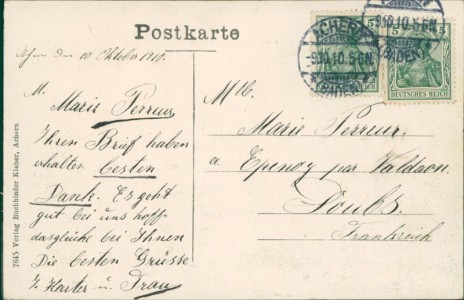 Postkarte
Achern den 10 Oktober 1910.
ACHERN
-9.10.10.5-6N.
(BADEN)
5 5
DEUTSCHES REICH
M.
Marie Perreur
Ihren Brief haben
erhalten besten
Dank. Es geht
gut bei uns hoff-
das gleiche bei Ihnen
Die besten Grüsse
Harter u. Frau
Mlle.
Marie Perreur.
a Epenoy par Valdaon.
Doubs.
Frankreich
7645 Verlag Buchbinder Kleber, Achern